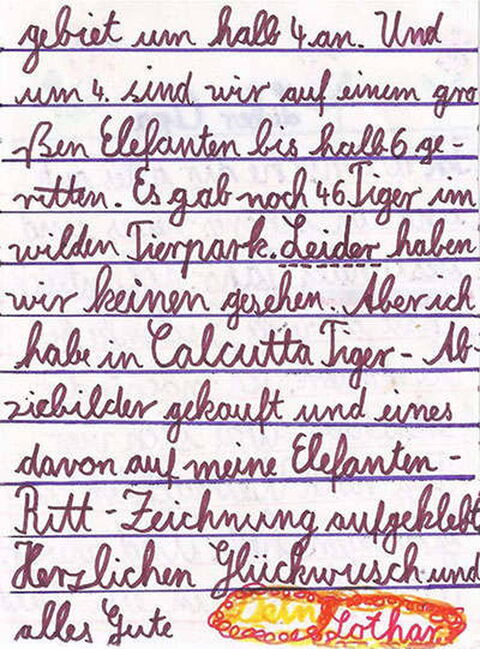 gebiet um halb 4 an. Und
um 4. sind wir auf einem gro
ßen Elefanten bis halb 6 ge-
ritten. Es gab noch 46 Tiger im
wilden Tierpark. Leider haben
wir keinen gesehen. Aber ich
habe in Calcutta Tiger - Ab-
ziebilder gekauft und eines
davon auf meine Elefanten -
Ritt - Zeichnung aufgeklebt
Herzlichen Glückwusch und
alles Gute Dein Lothar